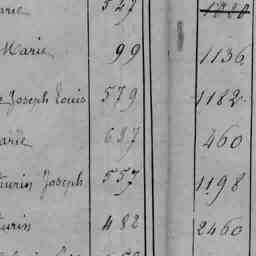 arie 547
Marie 99 1136
Joseph Louis 579 1182
arie 627 460
urin Joseph 557 1198
urin 482 2460